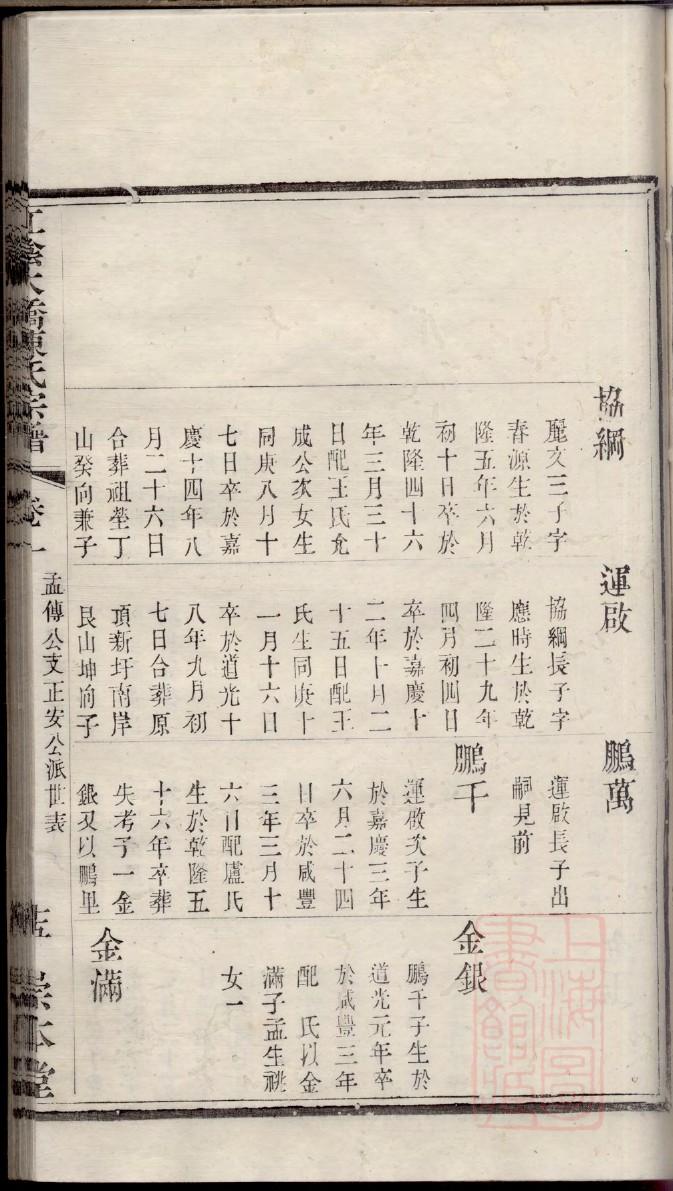 協綱
麗文三子字
春源生於乾
隆五年六月
初十日卒於
乾隆四十六
年三月三十
日配王氏允
成公次女生
同庚八月十
七日卒於嘉
慶十四年八
月二十六日
合葬祖塋丁
山癸向兼子
運啟
協綱長子字
應時生於乾
隆二十九年
四月初四日
卒於嘉慶十
二年十月二
十五日配王
氏生同庚十
一月十六日
卒於道光十
八年九月初
七日合葬原
頂新圩南岸
艮山坤向子
鵬萬
運啟長子出
嗣見前
鵬千
運啟次子生
於嘉慶三年
六月二十四
日卒於咸豐
三年三月十
六日配盧氏
生於乾隆五
十六年卒葬
失考子一金
銀又以鵬里
金銀
鵬千子生於
道光元年卒
於咸豐三年
配 氏以金
滿子孟生祧
女一
金滿
江陰大橋陳氏宗譜
卷一
孟傳公支正安公派世表
宗本堂
上海圖書館藏